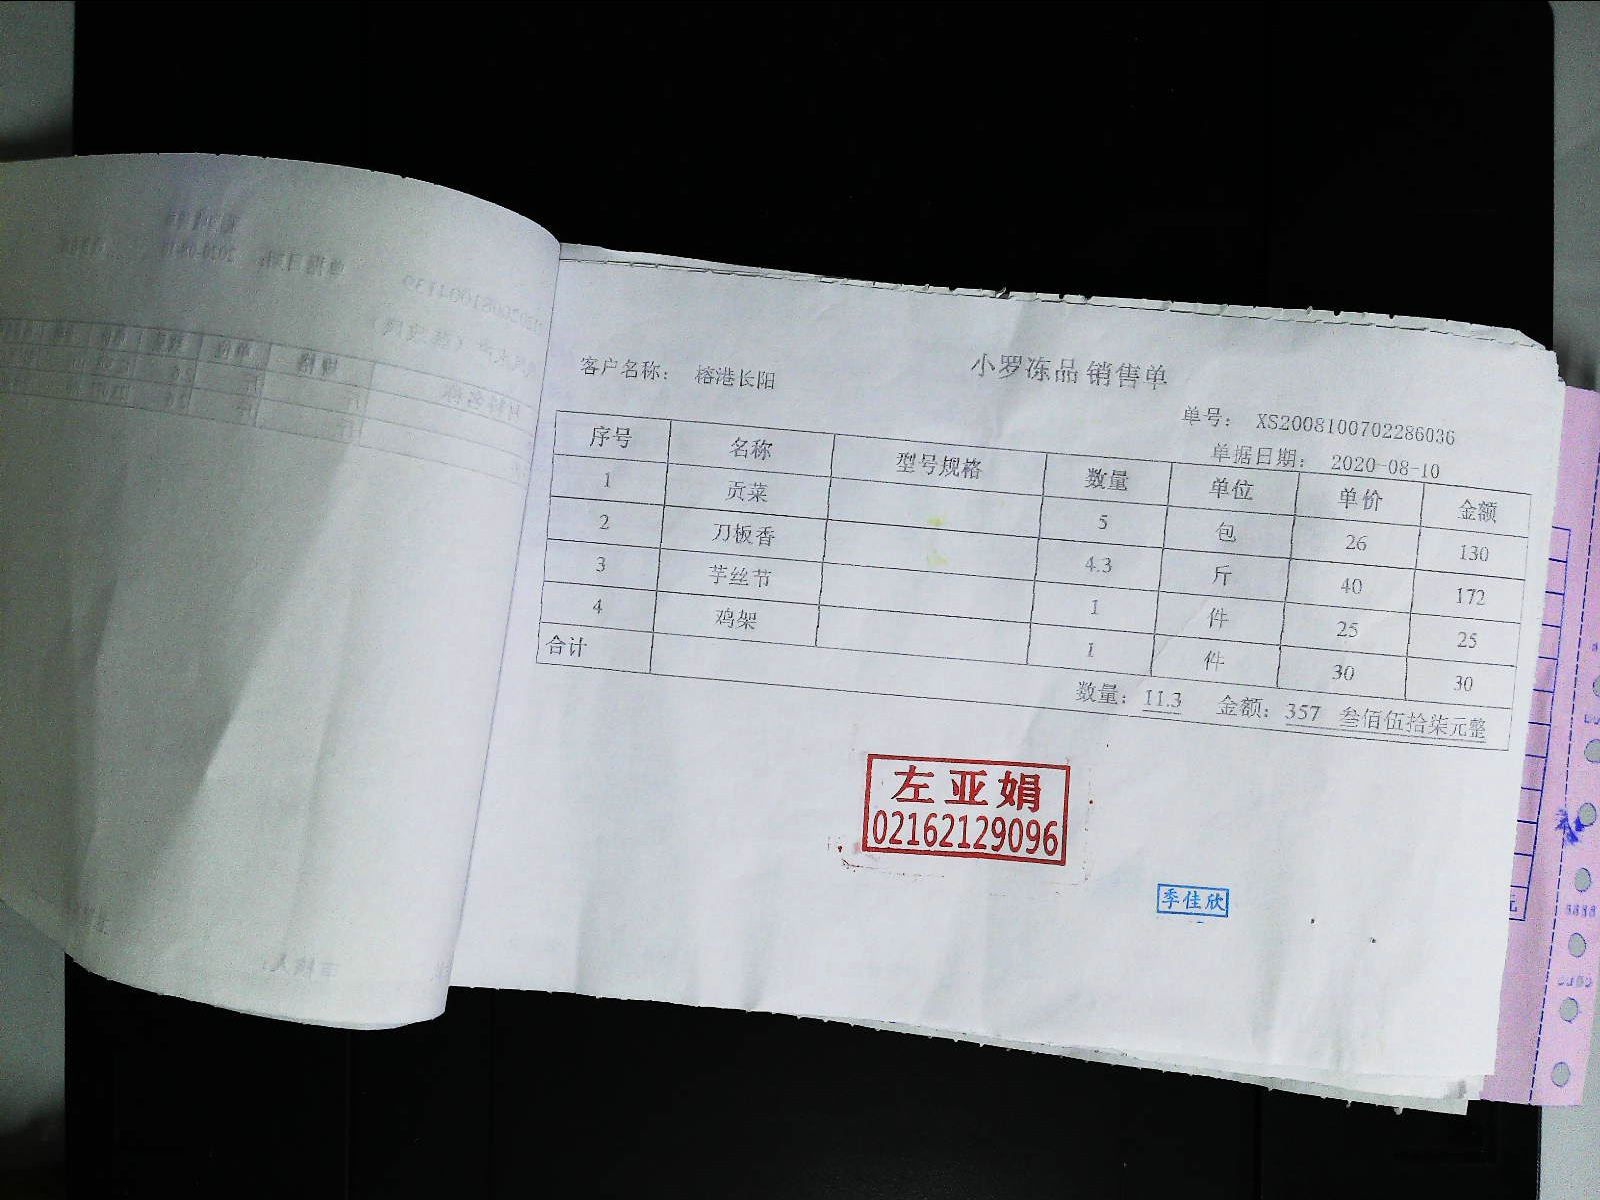 小罗冻品销售单
客户名称： 榕港长阳
单号： XS2008100702286036
单据日期： 2020-08-10
序号 名称 型号规格 数量 单位 单价 金额
1 贡菜 5 包 26 130
2 刀板香 4.3 斤 40 172
3 芋丝节 1 件 25 25
4 鸡架 1 件 30 30
合计
数量：11.3 金额：357 叁佰伍拾柒元整
左亚娟
02162129096
季佳欣